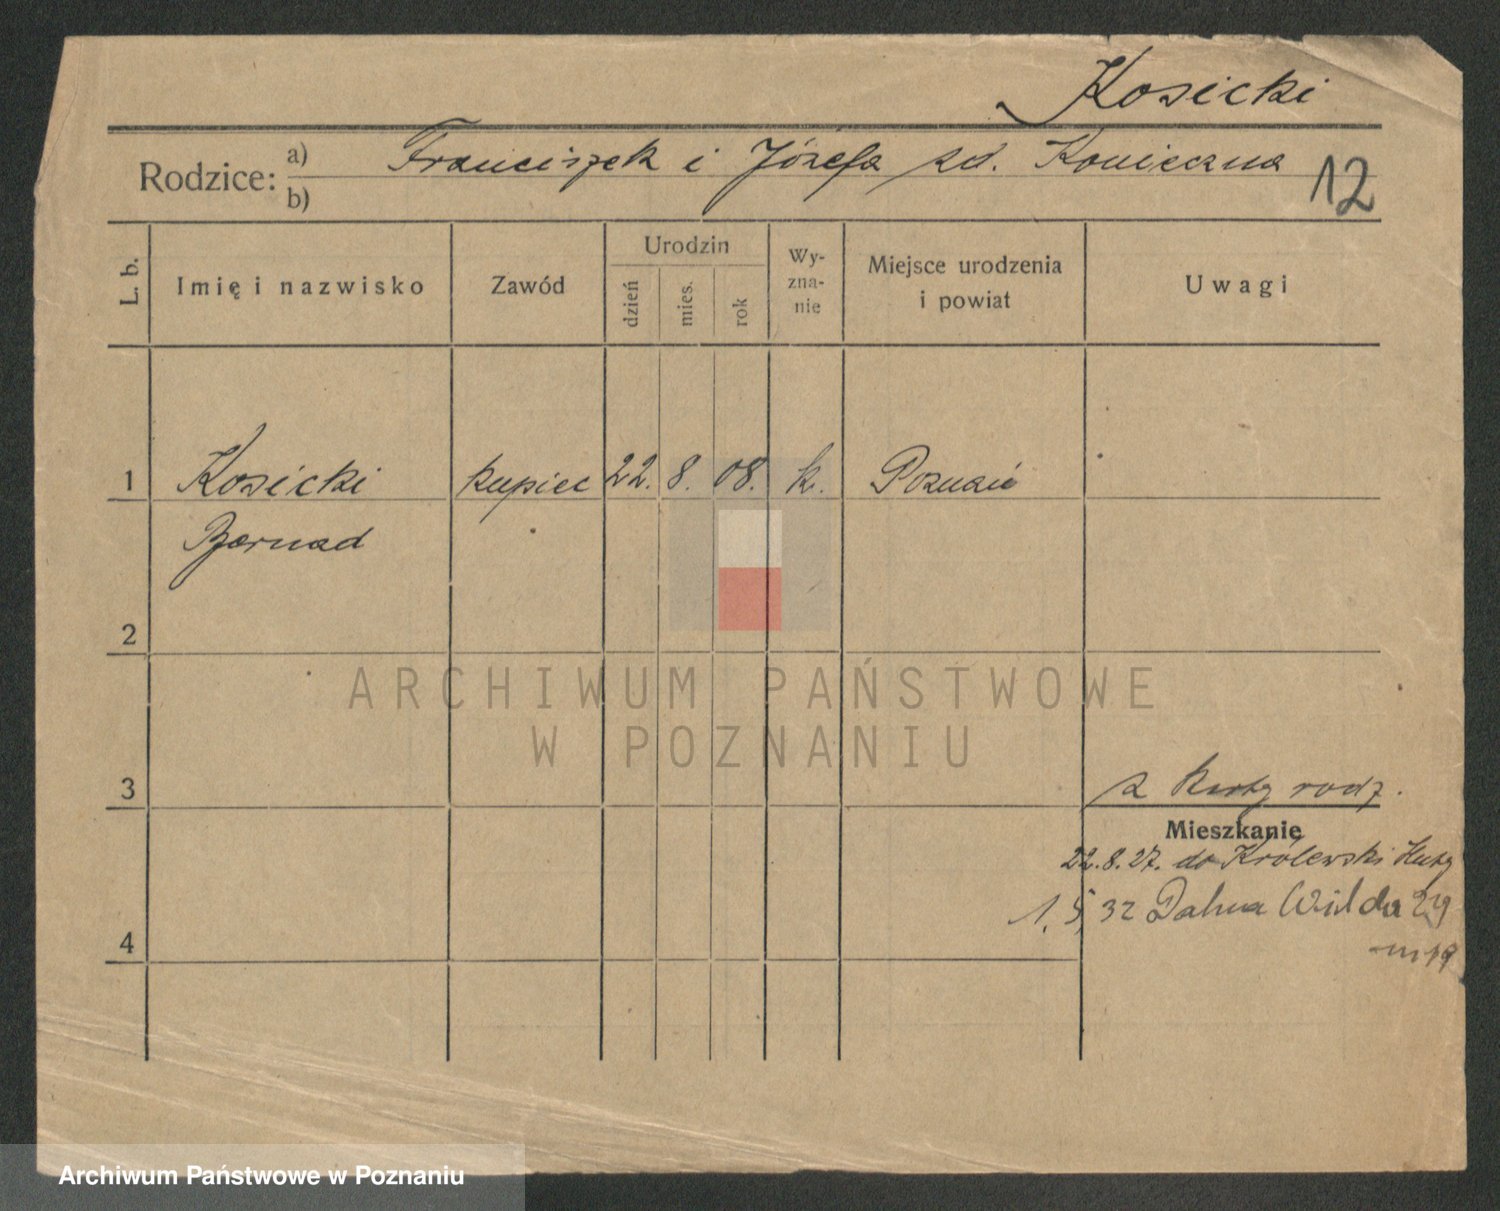 Kosicki
Rodzice: a) Franciszek i Józefa zd. Konieczna
b)
12
L. b.
Imię i nazwisko
Zawód
Urodzin
dzień
mies.
rok
Wy-
zna-
nie
Miejsce urodzenia
i powiat
Uwagi
1 Kosicki kupiec 22. 8. 08. k. Poznań
Bernad
2
ARCHIWUM PAŃSTWOWE
W POZNANIU
3
z Karty rodz.
Mieszkanie
22.8.27. do Królewski Huty
1. 5. 32 Dolna Wilda
m 19
4
Archiwum Państwowe w Poznaniu